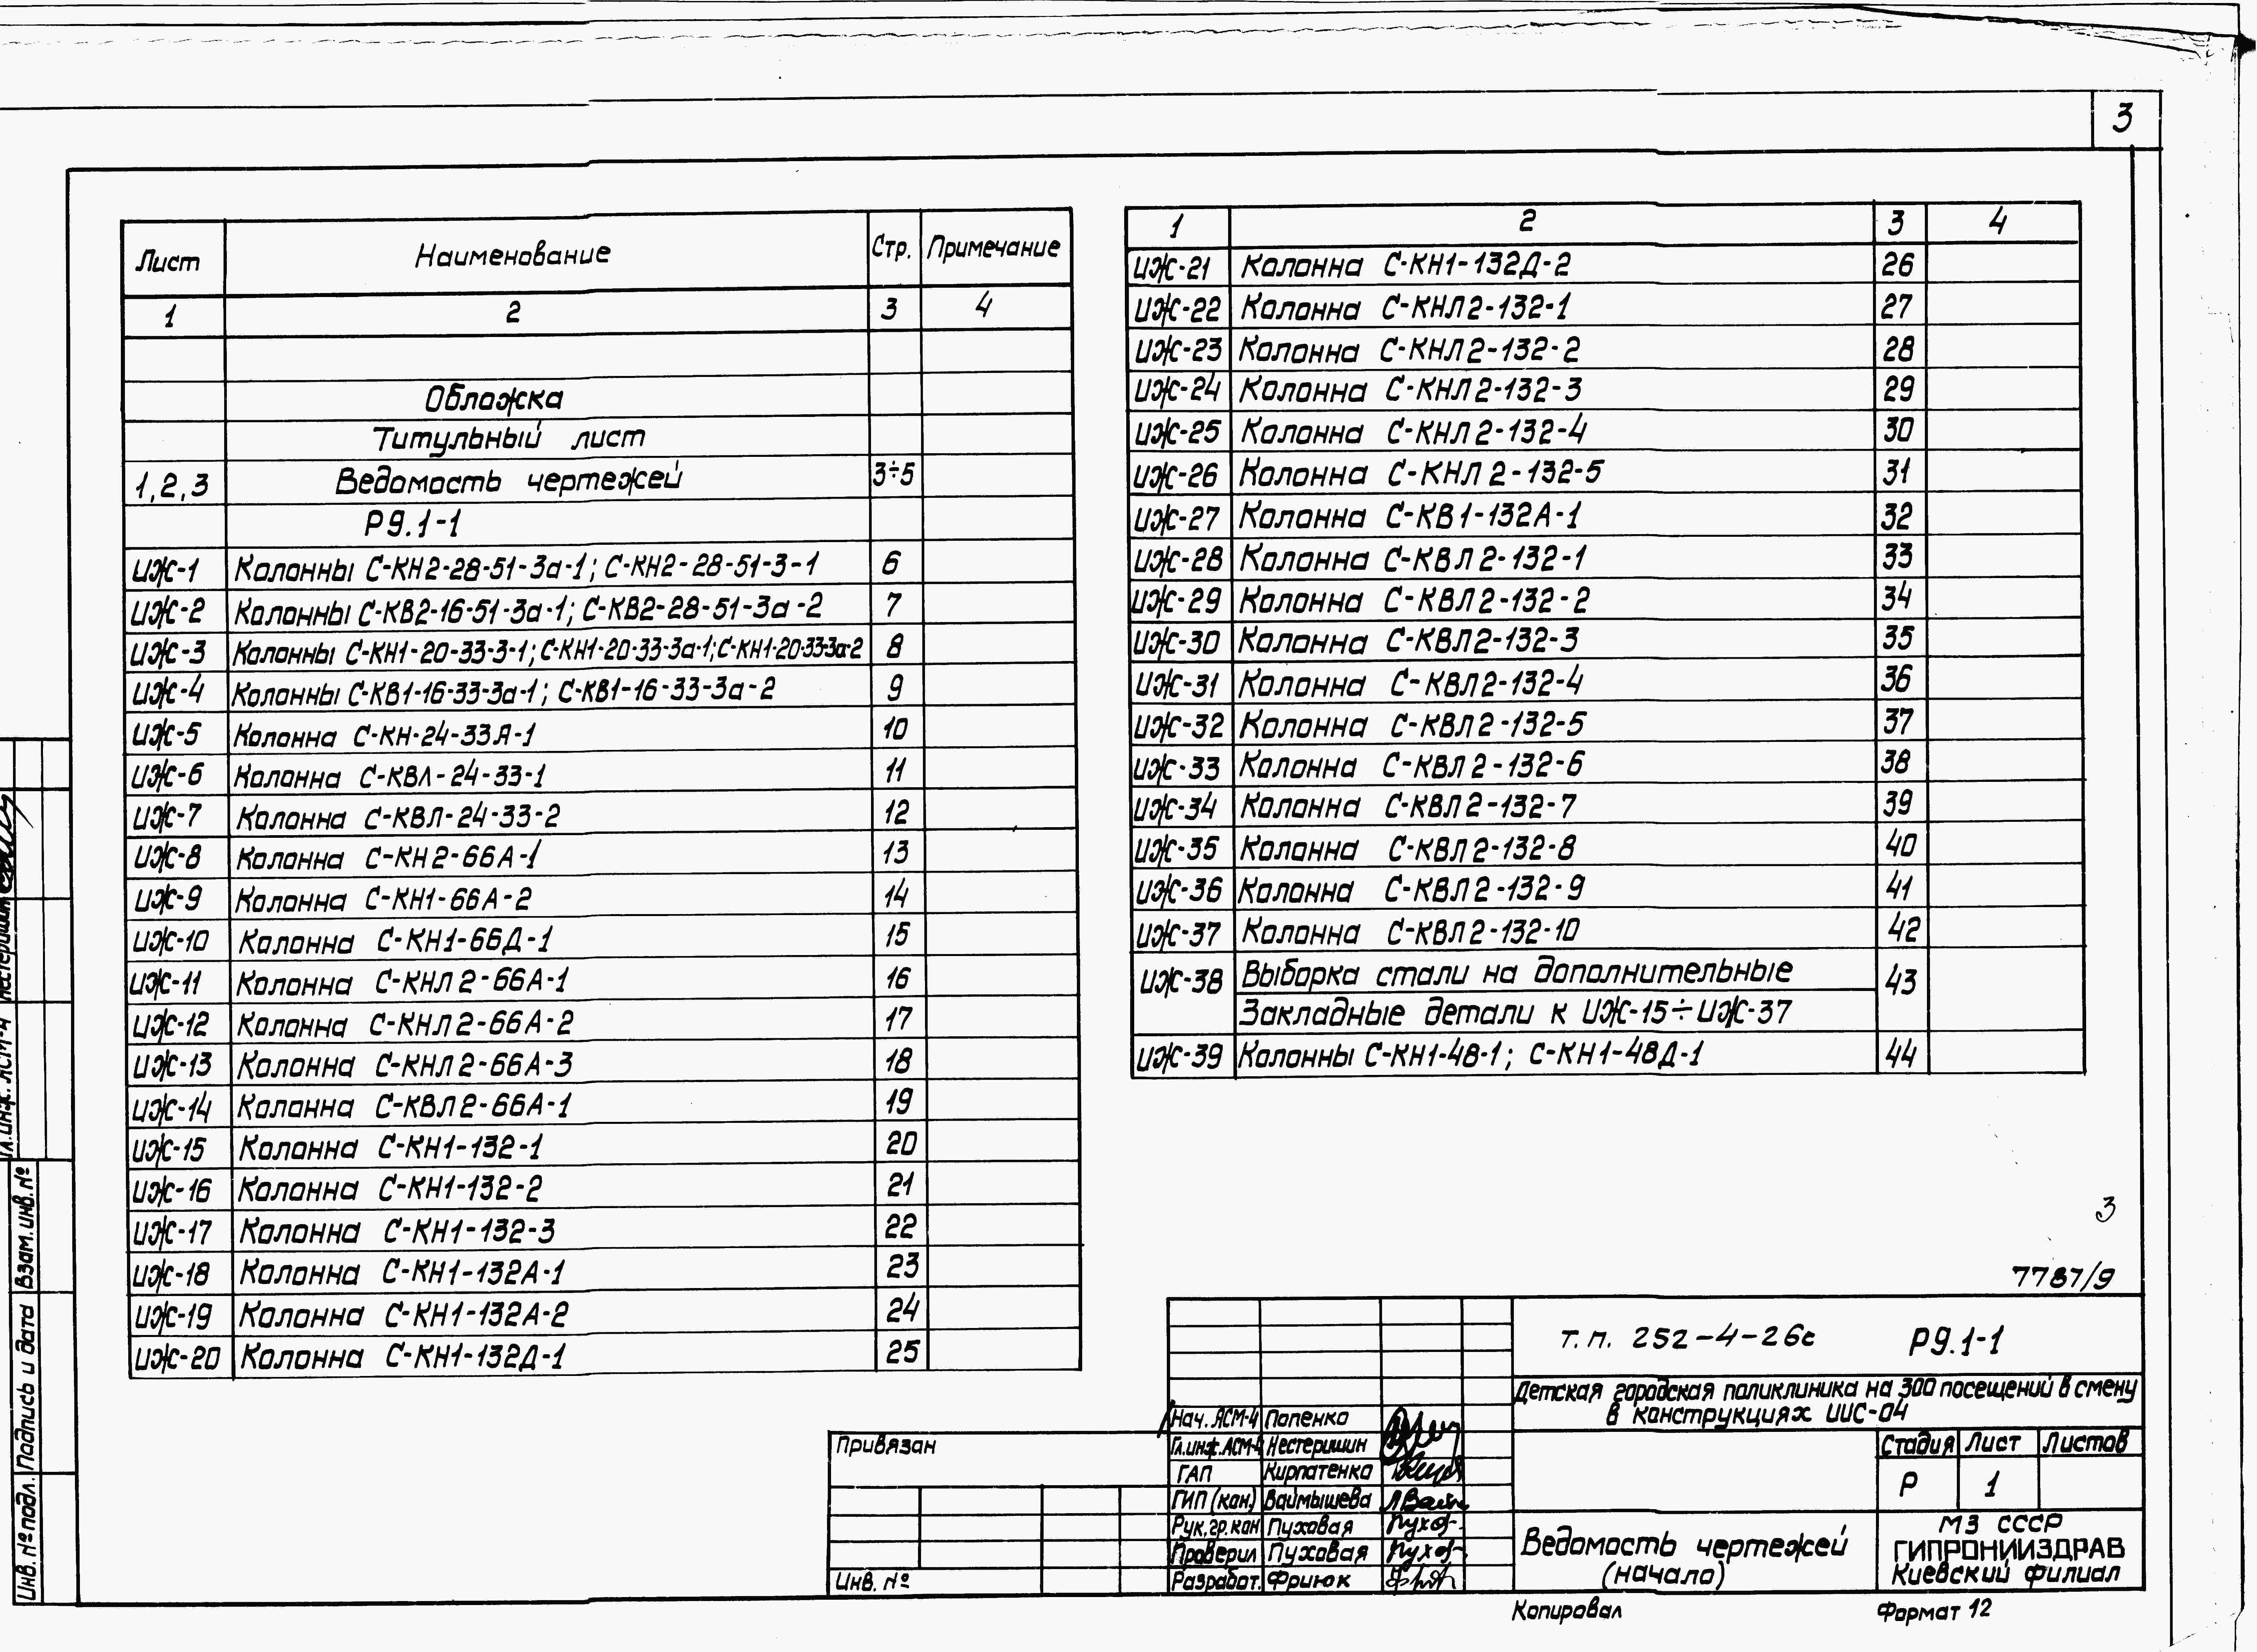 3
Лист Наименование Стр. Примечание
1 2 3 4
Обложка
Титульный лист
1,2,3 Ведомость чертежей 3÷5
Р9.1-1
ИЖ-1 Колонны С-КН2-28-51-3а-1; С-КН2-28-51-3-1 6
ИЖ-2 Колонны С-КВ2-16-51-3а-1; С-КВ2-28-51-3а-2 7
ИЖ-3 Колонны С-КН1-20-33-3-1; С-КН1-20-33-3а-1; С-КН1-20-33-3а-2 8
ИЖ-4 Колонны С-КВ1-16-33-3а-1; С-КВ1-16-33-3а-2 9
ИЖ-5 Колонна С-КН-24-33Я-1 10
ИЖ-6 Колонна С-КВЛ-24-33-1 11
ИЖ-7 Колонна С-КВЛ-24-33-2 12
ИЖ-8 Колонна С-КН2-66А-1 13
ИЖ-9 Колонна С-КН1-66А-2 14
ИЖ-10 Колонна С-КН1-66Д-1 15
ИЖ-11 Колонна С-КНЛ2-66А-1 16
ИЖ-12 Колонна С-КНЛ2-66А-2 17
ИЖ-13 Колонна С-КНЛ2-66А-3 18
ИЖ-14 Колонна С-КВЛ2-66А-1 19
ИЖ-15 Колонна С-КН1-132-1 20
ИЖ-16 Колонна С-КН1-132-2 21
ИЖ-17 Колонна С-КН1-132-3 22
ИЖ-18 Колонна С-КН1-132А-1 23
ИЖ-19 Колонна С-КН1-132А-2 24
ИЖ-20 Колонна С-КН1-132Д-1 25
1 2 3 4
ИЖ-21 Колонна С-КН1-132Д-2 26
ИЖ-22 Колонна С-КНЛ2-132-1 27
ИЖ-23 Колонна С-КНЛ2-132-2 28
ИЖ-24 Колонна С-КНЛ2-132-3 29
ИЖ-25 Колонна С-КНЛ2-132-4 30
ИЖ-26 Колонна С-КНЛ2-132-5 31
ИЖ-27 Колонна С-КВ1-132А-1 32
ИЖ-28 Колонна С-КВЛ2-132-1 33
ИЖ-29 Колонна С-КВЛ2-132-2 34
ИЖ-30 Колонна С-КВЛ2-132-3 35
ИЖ-31 Колонна С-КВЛ2-132-4 36
ИЖ-32 Колонна С-КВЛ2-132-5 37
ИЖ-33 Колонна С-КВЛ2-132-6 38
ИЖ-34 Колонна С-КВЛ2-132-7 39
ИЖ-35 Колонна С-КВЛ2-132-8 40
ИЖ-36 Колонна С-КВЛ2-132-9 41
ИЖ-37 Колонна С-КВЛ2-132-10 42
ИЖ-38 Выборка стали на дополнительные 43
Закладные детали к ИЖ-15÷ИЖ-37
ИЖ-39 Колонны С-КН1-48-1; С-КН1-48Д-1 44
3
7787/9
т.п. 252-4-26с Р9.1-1
Детская городская поликлиника на 300 посещений в смену
в конструкциях ИИС-04
Стадия Лист Листов
Р 1
Ведомость чертежей
(начало)
МЗ СССР
ГИПРОНИИЗДРАВ
Киевский филиал
Нач. АСМ-4 Попенко
Гл.инж.АСМ-4 Нестеришин
ГАП Кирпатенко
ГИП (кон.) Ваймышева
Рук.гр.кон Пуховая
Проверил Пуховая
Разработ. Фриюк
Привязан
Инв. №
Копировал Формат 12
Гл.инж. АСМ-4 Нестеришин
Взам. инв. №
Подпись и дата
Инв. № подл.